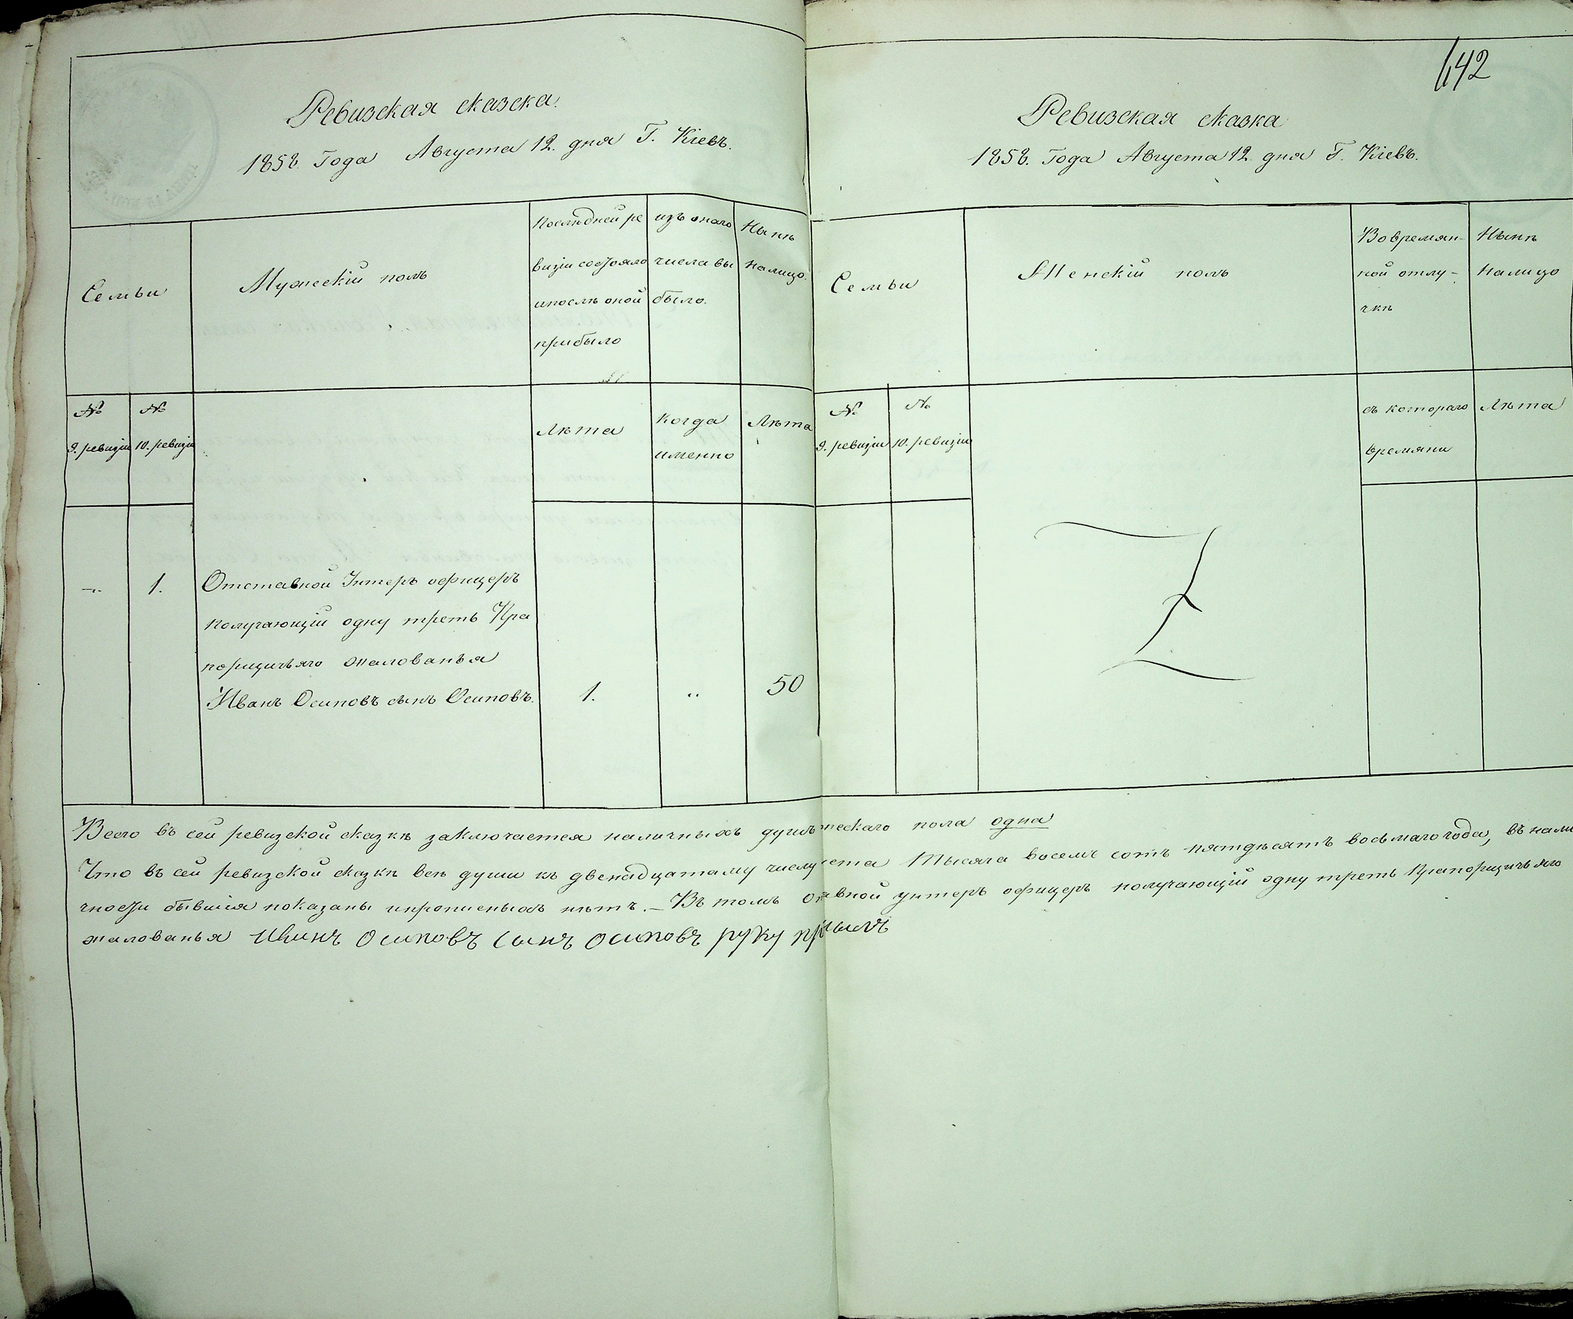 642
Ревизская сказка.
1858. Года Августа 12. дня Г. Кіевъ.
Семьи
Мужескій полъ
Последней ре
визіи состояло
ипослѣ оной
прибыло
изъ онаго
числа вы
было.
Нынѣ
налицо.
№
9. ревизіи
№
10. ревизіи
Лѣта
когда
именно
Лѣта
„
1.
Отставной Унтеръ офицеръ
получающій одну треть Пра
порщичьяго жалованья
Иванъ Осиповъ сынъ Осиповъ.
1.
„
50
Ревизская сказка
1858. Года Августа 12. дня Г. Кіевъ.
Семьи
Женскій полъ
Вовремян-
ной отлу-
чкѣ
Нынѣ
налицо
№
9. ревизіи
№
10. ревизіи
съ котораго
времяни
Лѣта
Всего въ сей ревизской сказкѣ заключается наличныхъ душъ мужескаго пола одна
Что въ сей ревизской сказкѣ всѣ души къ двенадцатому числу Августа Тысяча восемь сотъ пятдѣсятъ восьмаго года, въ нали
чности бывшія показаны ипрописныхъ нѣтъ. – Въ томъ отставной унтеръ офицеръ получающій одну треть Прапорщичьяго
жалованья Иванъ Осиповъ Сынъ Осиповъ руку